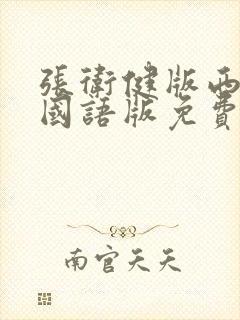 張衛健版西
國語版免費
南官天天